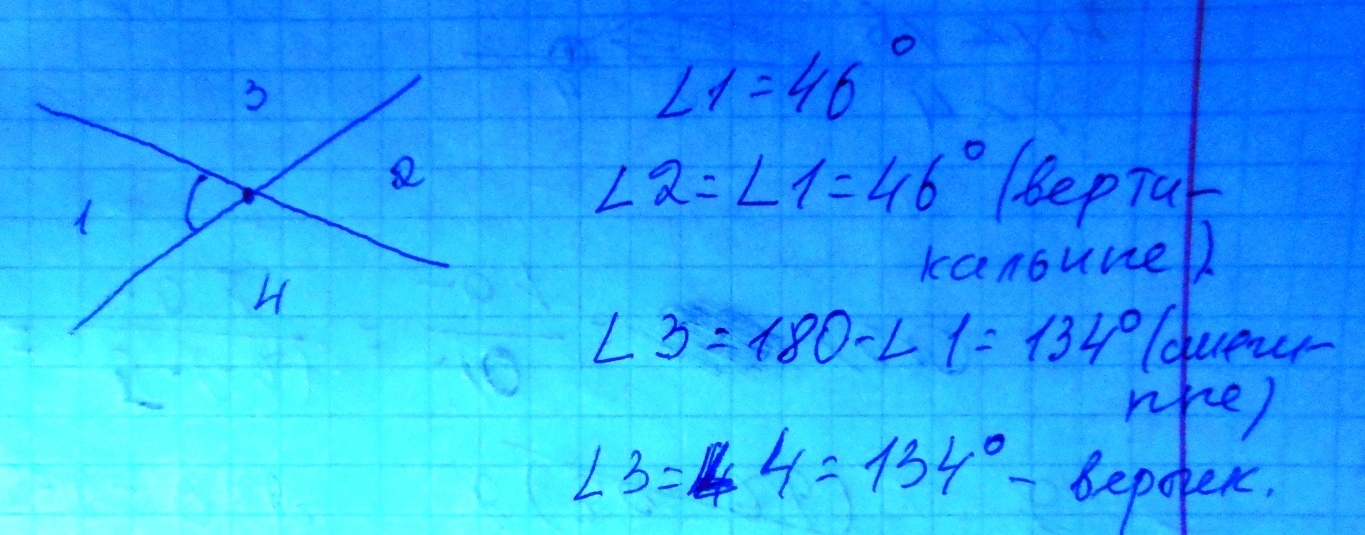 3
2
1
4
∠1=46°
∠2=∠1=46° (верти-
кальные)
∠3=180-∠1=134° (смеж-
ные)
∠3=∠4=134° - вертик.